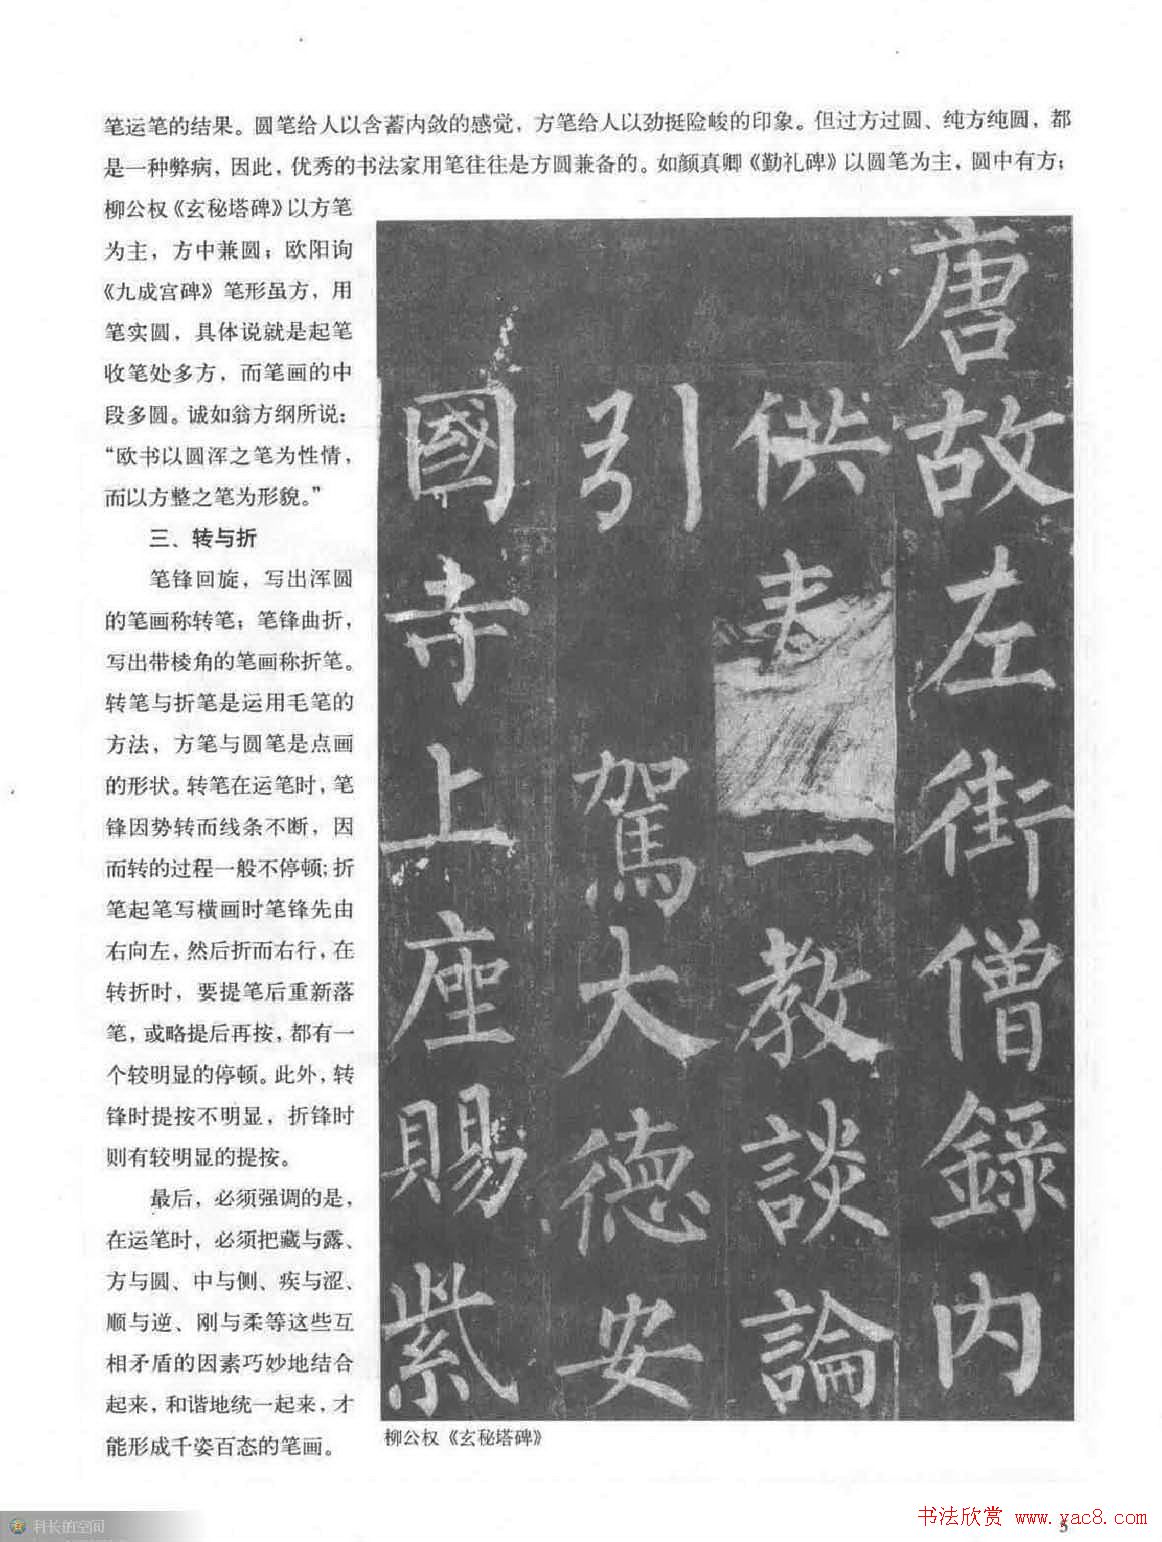 笔运笔的结果。圆笔给人以含蓄内敛的感觉，方笔给人以劲挺险峻的印象。但过方过圆、纯方纯圆，都
是一种弊病，因此，优秀的书法家用笔往往是方圆兼备的。如颜真卿《勤礼碑》以圆笔为主，圆中有方；
柳公权《玄秘塔碑》以方笔
为主，方中兼圆；欧阳询
《九成宫碑》笔形虽方，用
笔实圆，具体说就是起笔
收笔处多方，而笔画的中
段多圆。诚如翁方纲所说：
“欧书以圆浑之笔为性情，
而以方整之笔为形貌。”
三、转与折
笔锋回旋，写出浑圆
的笔画称转笔；笔锋曲折，
写出带棱角的笔画称折笔。
转笔与折笔是运用毛笔的
方法，方笔与圆笔是点画
的形状。转笔在运笔时，笔
锋因势转而线条不断，因
而转的过程一般不停顿；折
笔起笔写横画时笔锋先由
右向左，然后折而右行，在
转折时，要提笔后重新落
笔，或略提后再按，都有一
个较明显的停顿。此外，转
锋时提按不明显，折锋时
则有较明显的提按。
最后，必须强调的是，
在运笔时，必须把藏与露、
方与圆、中与侧、疾与涩、
顺与逆、刚与柔等这些互
相矛盾的因素巧妙地结合
起来，和谐地统一起来，才
能形成千姿百态的笔画。
唐故左街僧錄内
供三教談論
引駕大德安
國寺上座賜紫
柳公权《玄秘塔碑》
科长的空间
书法欣赏 www.yac8.com
5